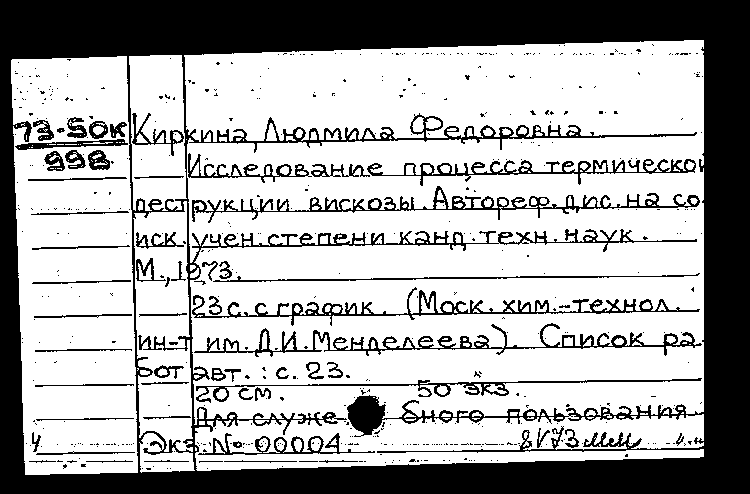 73-50к Киркина, Людмила Федоровна.
998 Исследование процесса термической
деструкции вискозы. Автореф. дис. на со
иск. учен. степени канд. техн. наук.
М., 1973.
23 с. с график. (Моск. хим.-технол.
ин-т им. Д.И. Менделеева). Список ра
бот авт.: с. 23.
20 см. 50 экз.
Для служебного пользования
Экз. № 00004.
4